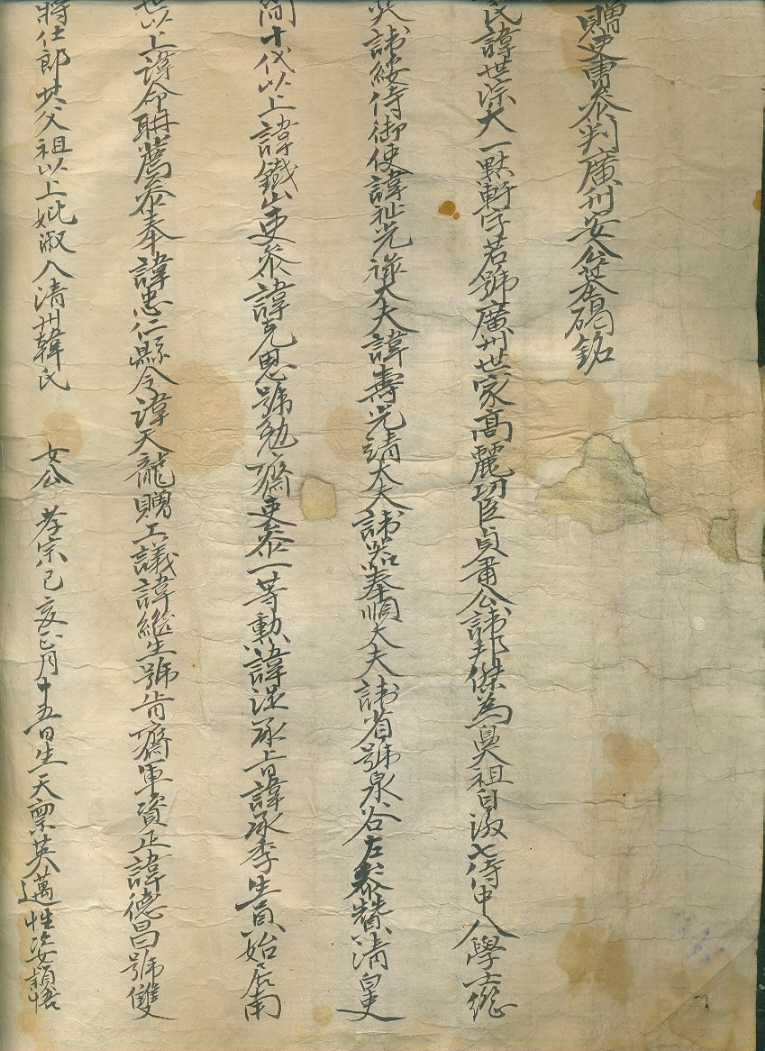 贈吏曹參判廣州安公墓碣銘
民諱世淙大一點軒字若號廣州世家高麗功臣貞肅公諱邦傑為鼻祖自淑七侍中八學士總
諱綏侍御使諱祉光祿大夫諱壽光靖大夫諱器奉順大夫諱省號泉谷左參贊清白吏
間十代以上諱鐵山吏參諱克思號勉齋吏參一等勳諱混承旨諱承季生員始居南
世以上諱命聃薦參奉諱忠仁縣令諱天龍贈工議諱繼生號肯齋軍資正諱德昌號雙
將仕郎其父祖以上妣淑人清州韓氏 女公 孝宗己亥正月十五日生天稟英邁性姿穎悟